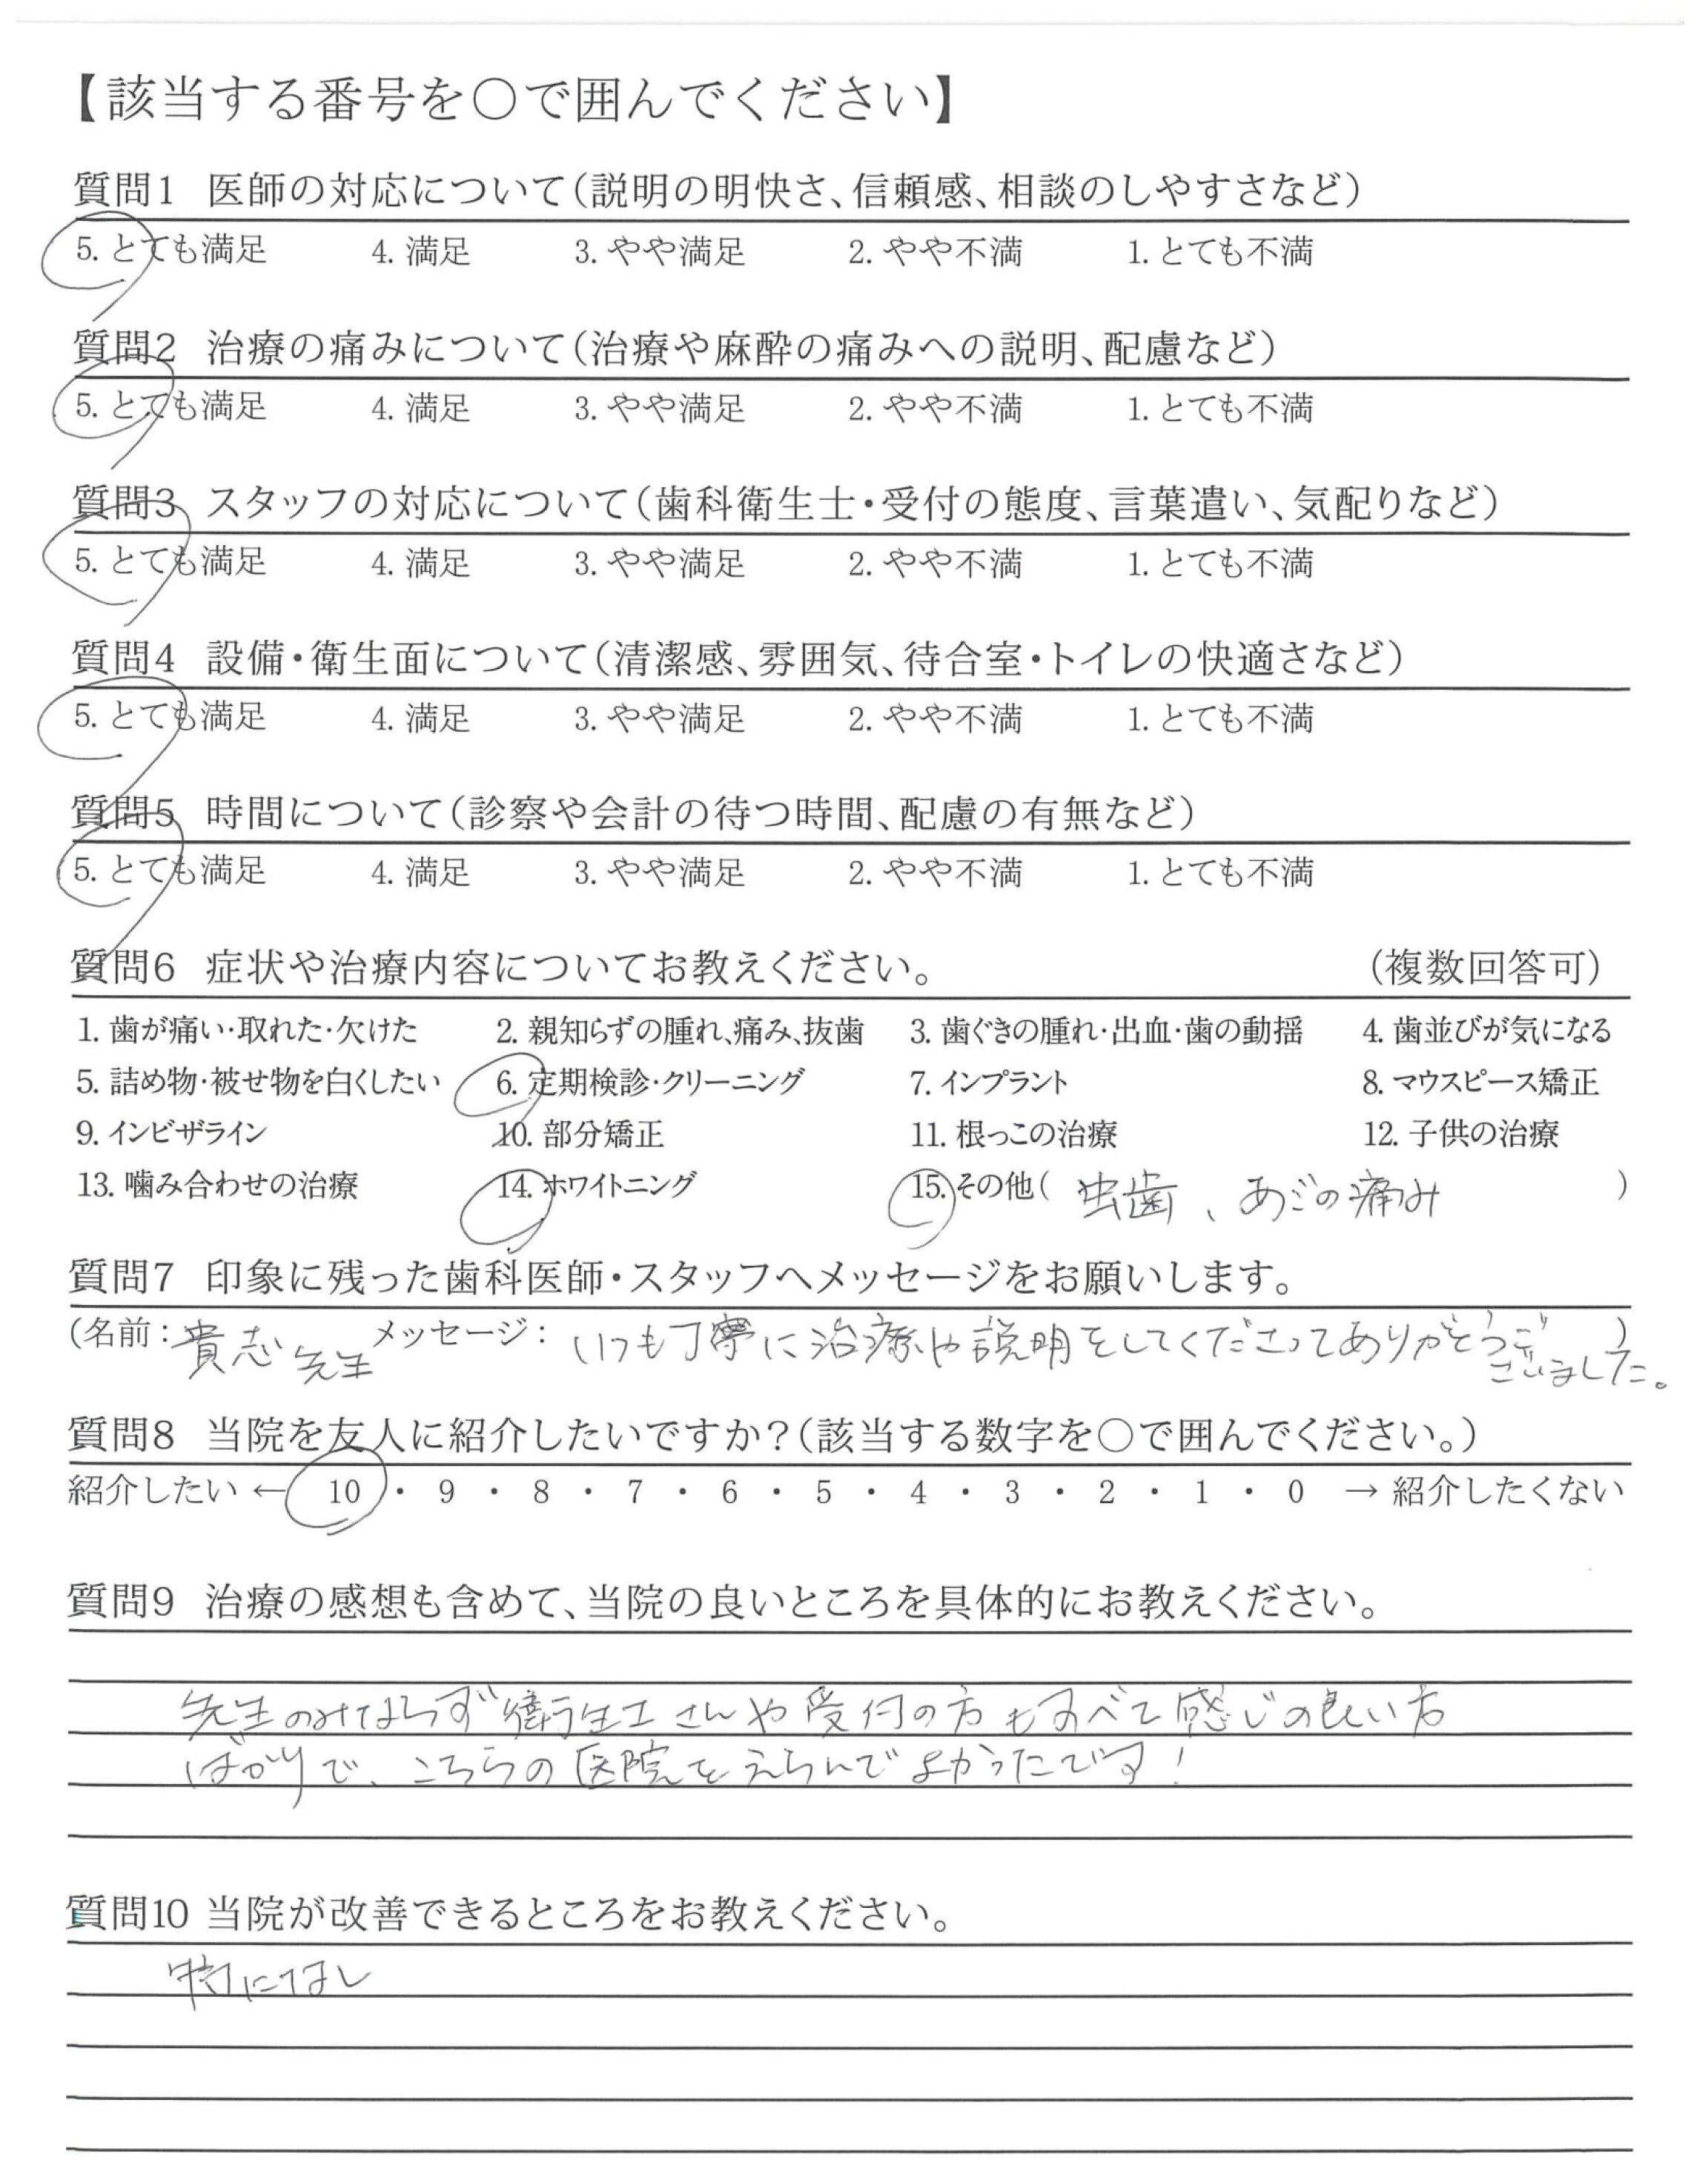 【該当する番号を〇で囲んでください】
質問1 医師の対応について（説明の明快さ、信頼感、相談のしやすさなど）
5. とても満足 4. 満足 3. やや満足 2. やや不満 1. とても不満
質問2 治療の痛みについて（治療や麻酔の痛みへの説明、配慮など）
5. とても満足 4. 満足 3. やや満足 2. やや不満 1. とても不満
質問3 スタッフの対応について（歯科衛生士・受付の態度、言葉遣い、気配りなど）
5. とても満足 4. 満足 3. やや満足 2. やや不満 1. とても不満
質問4 設備・衛生面について（清潔感、雰囲気、待合室・トイレの快適さなど）
5. とても満足 4. 満足 3. やや満足 2. やや不満 1. とても不満
質問5 時間について（診察や会計の待つ時間、配慮の有無など）
5. とても満足 4. 満足 3. やや満足 2. やや不満 1. とても不満
質問6 症状や治療内容についてお教えください。 （複数回答可）
1. 歯が痛い・取れた・欠けた 2. 親知らずの腫れ、痛み、抜歯 3. 歯ぐきの腫れ・出血・歯の動揺 4. 歯並びが気になる
5. 詰め物・被せ物を白くしたい 6. 定期検診・クリーニング 7. インプラント 8. マウスピース矯正
9. インビザライン 10. 部分矯正 11. 根っこの治療 12. 子供の治療
13. 噛み合わせの治療 14. ホワイトニング 15. その他（ 虫歯、あごの痛み ）
質問7 印象に残った歯科医師・スタッフへメッセージをお願いします。
（名前：貴志先生 メッセージ： いつも丁寧に治療や説明をしてくださってありがとうご ）
ございました。
質問8 当院を友人に紹介したいですか？（該当する数字を〇で囲んでください。）
紹介したい ← 10 ・ 9 ・ 8 ・ 7 ・ 6 ・ 5 ・ 4 ・ 3 ・ 2 ・ 1 ・ 0 → 紹介したくない
質問9 治療の感想も含めて、当院の良いところを具体的にお教えください。
先生のみならず衛生士さんや受付の方もすべて感じの良い方
ばかりで、こちらの医院をえらんでよかったです！
質問10 当院が改善できるところをお教えください。
特になし